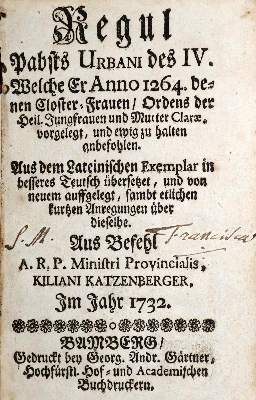 Regul
Pabsts URBANI des IV.
Welche Er Anno 1264. de-
nen Closter-Frauen / Ordens der
Heil. Jungfrauen und Mutter Claræ,
vorgelegt, und ewig zu halten
anbefohlen.
Aus dem Lateinischen Exemplar in
besseres Teutsch übersetzet, und von
neuem auffgelegt, sambt etlichen
kurtzen Anregungen über
dieselbe.
S. M. Francisca
Aus Befehl
A. R. P. Ministri Provincialis,
KILIANI KATZENBERGER,
Im Jahr 1732.
BAMBERG /
Gedruckt bey Georg. Andr. Gärtner,
Hochfürstl. Hof- und Academischen
Buchdruckern.